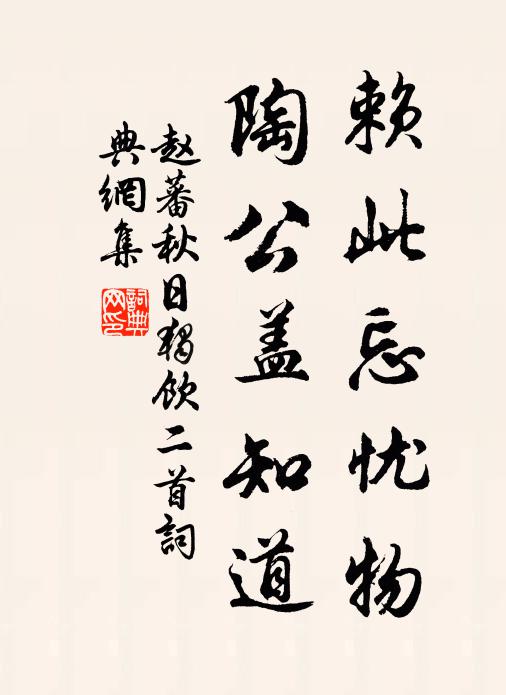 赖此忘忧物
陶公盖知道
赵蕃秋日独饮二首詞
典網集
詞典网印